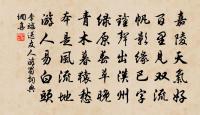 嘉陵天氣好
百里見雙流
帆影緣巴字
鐘聲出漢州
綠原春草晚
青木暮猿愁
本是風流地
遊人易白頭
李端送友人游蜀詞典
網